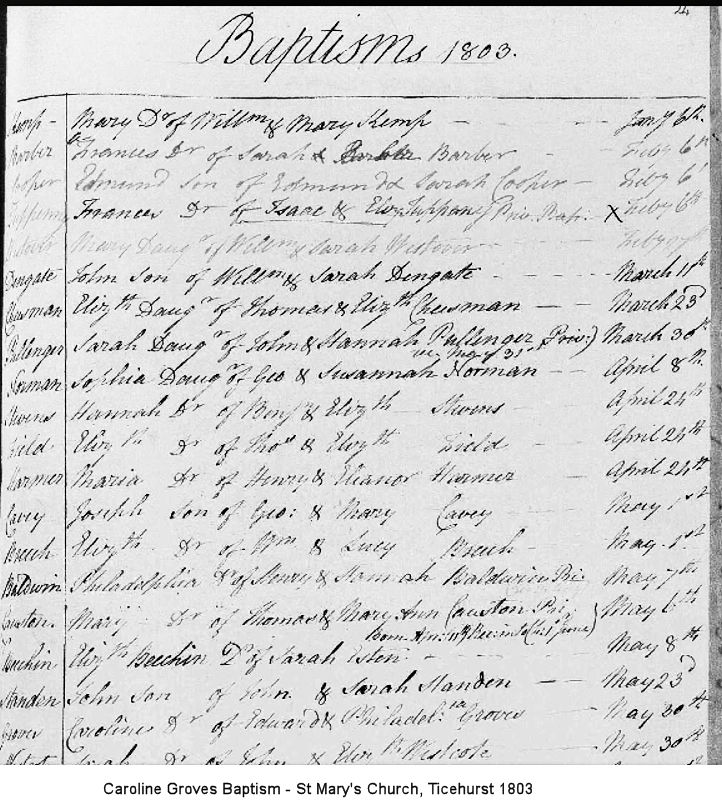 Baptisms 1803.
Kemp Mary Dr of Willm & Mary Kemp Jany 6th
Barber Frances Dr of Sarah & Barber Feby 6th
Cosper Edmund son of Edmund & Sarah Cosper Feby 6th
Frances Dr of Isaac & Eliz. Priv. Bap. X Feby 6th
Westover Mary Daugr of Willm & Sarah Westover Feby
Dengate John Son of Willm & Sarah Dengate March 11th
Cheesman Elizth Daugr of Thomas & Elizth Cheesman March 23d
Pullenger Sarah Daugr of John & Hannah Pullenger Priv:) March 30th
31st
Norman Sophia Daugr of Geo & Susannah Norman April 8th
Stevens Hannah Dr of Benj & Elizth Stevens April 24th
Field Elizth Dr of Thos & Elizth Field April 24th
Harmer Maria Dr of Henry & Eleanor Harmer April 24th
Cavey Joseph Son of Geo: & Mary Cavey May 1st
Breech Elizth Dr of Wm & Lucy Breech May 1st
Baldwin Philadelphia Dr of Henry & Hannah Baldwin Pri May 7th
Causton Mary Dr of Thomas & Mary Ann Causton Pri May 6th
Born June)
Beechin Elizth Beechin Dr of Sarah Esten May 8th
Standen John Son of John & Sarah Standen May 23d
Groves Caroline Dr of Edward & Philadel:ia Groves May 30th
Sarah Dr of John & Elizth Westcote May 30th
Caroline Groves Baptism - St Mary's Church, Ticehurst 1803